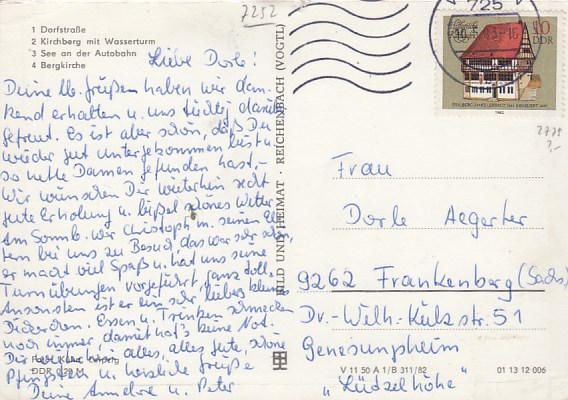 7252
1 Dorfstraße
2 Kirchberg mit Wasserturm
3 See an der Autobahn
4 Bergkirche
Liebe Dorle!
Deine lb. Grüßen haben wir dan-
kend erhalten u. uns tüchtig damit
gefreut. Es ist aber schön, daß Du
wieder gut untergekommen bist u.
so nette Damen gefunden hast.-
Wir wünschen Dir weiterhin recht
gute Erholung u. bißel schönes Wetter.
Am Sonnb. war Christoph m. seinen El-
tern bei uns zu Besuch, das war sehr schön,
er macht viel Spaß u. hat uns seine
Turnübungen vorgeführt, ganz toll.
Ansonsten ist er ein sehr liebes kleines
Dickerchen. Essen u. Trinken schmecken
noch immer, damit hat's keine Not.
Dir weiterhin alles, alles gute, schöne
Pfingsten u. herzliche Grüße
Deine Annelore u. Peter
DDR 0,20 M
BILD UND HEIMAT · REICHENBACH (VOGTL)
725
10
DDR
1982
2775
Frau
Dorle Aegerter
9262 Frankenberg (Sachs)
Dr.-Wilh.-Külz-str. 51
Genesungsheim
V 11 50 A 1/B 311/82
01 13 12 006
"Lützelhöhe"